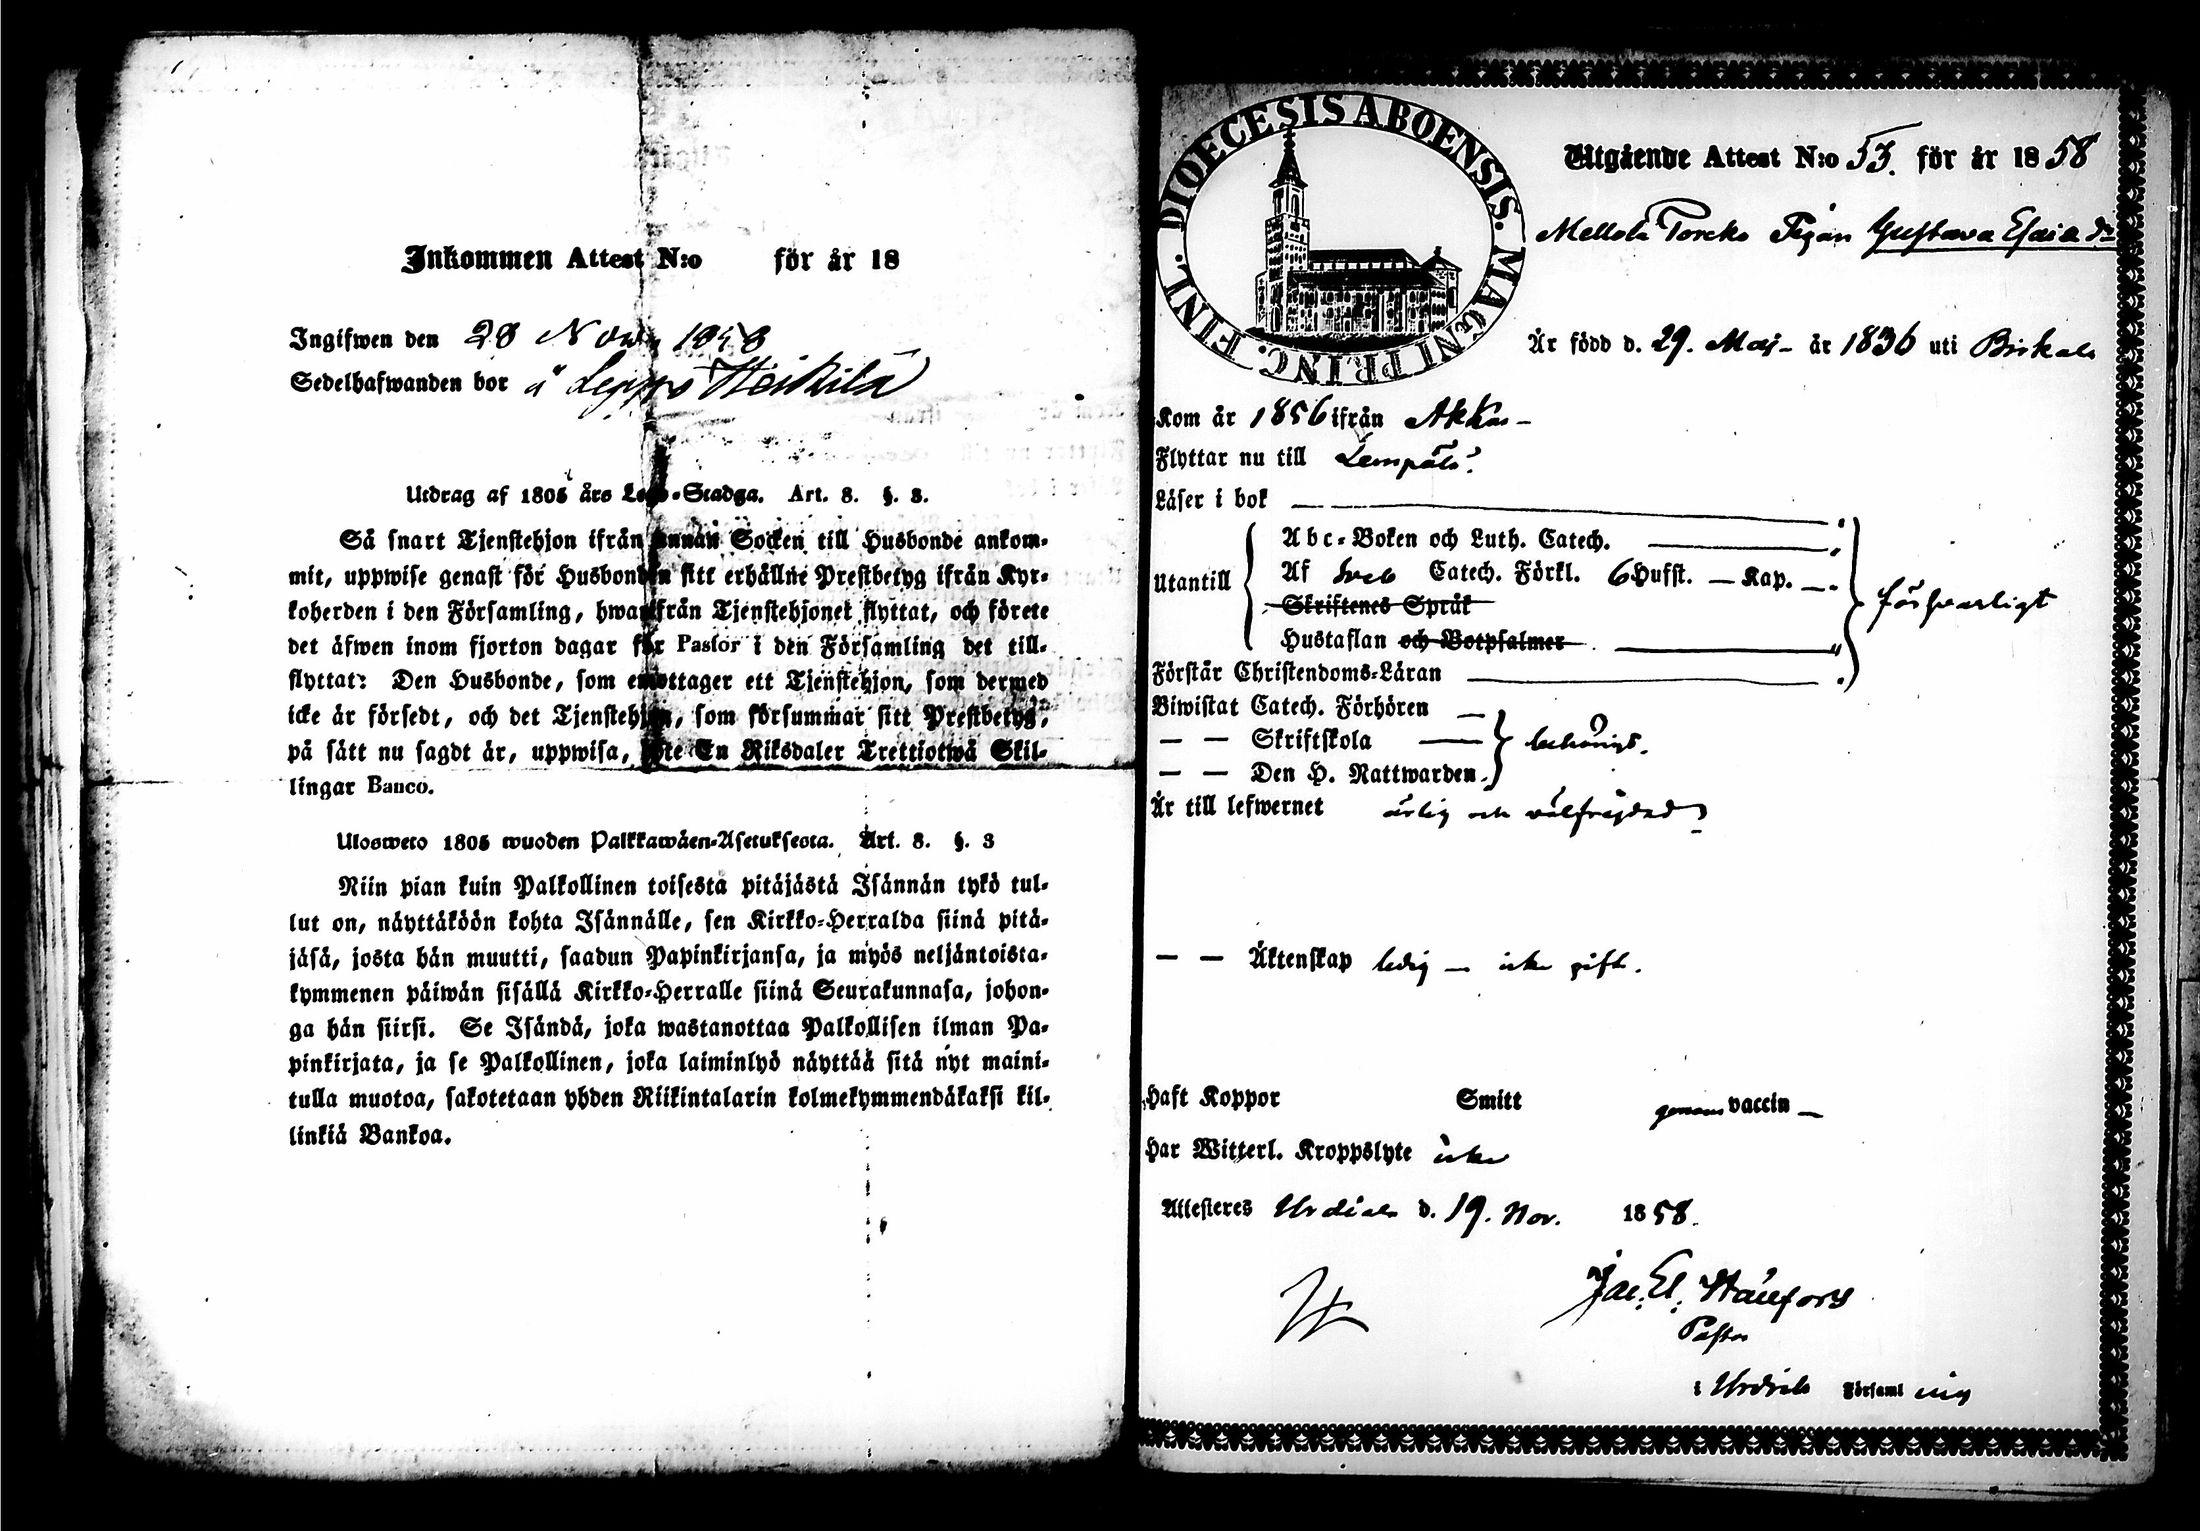 Inkommen Attest N:o för år 18
Ingifwen den 28 Nov. 1858
Sedelhafwanden bor å Lepps Heikilä
Utdrag af 1805 års Lego-Stadga. Art. 8. §. 3.
Så snart Tjenstehjon ifrån annan Socken till Husbonde ankom-
mit, uppwise genast för Husbonden sitt erhållne Prestbetyg ifrån Kyr-
koherden i den Församling, hwarifrån Tjenstehjonet flyttat, och förete
det äfwen inom fjorton dagar för Pastor i den Församling det till-
flyttat: Den Husbonde, som emottager ett Tjenstehjon, som dermed
icke är försedt, och det Tjenstehjon, som försummar sitt Prestbetyg,
på sätt nu sagdt är, uppwisa, böte En Riksdaler Trettiotwå Skil-
lingar Banco.
Uloswето 1805 wuoden Palkkawäen-Asetuksesta. Art. 8. §. 3
Niin pian kuin Palkollinen toisesta pitäjästä Isännän tykö tul-
lut on, näyttäköön kohta Isännälle, sen Kirkko-Herralda siinä pitä-
jäsä, josta hän muutti, saadun Papinkirjansa, ja myös neljäntoista-
kymmenen päiwän sisällä Kirkko-Herralle siinä Seurakunnasa, johon-
ga hän siirsi. Se Isändä, joka wastanottaa Palkollisen ilman Pa-
pinkirjata, ja se Palkollinen, joka laiminlyö näyttää sitä nyt maini-
tulla muotoa, sakotetaan yhden Riikintalarin kolmekymmendäkaksi kil-
linkiä Bankoa.
FINL. DIOECESIS ABOENSIS. MAGNI PRINC.
Utgående Attest N:o 53. för år 1858
Mellola Torcko Pigan Gustava Esaiæ Dr
Är född d. 29. Maj - år 1836 uti Birkala
Kom år 1856 ifrån Akkas -
Flyttar nu till Lempälä.
Läser i bok
Utantill
Abc-Boken och Luth. Catech.
Af Sveb Catech. Förkl. 6 Hufst. — Kap. —
Skriftenes Språk
Hustaflan och Botpsalmer
försvarligt
Förstår Christendoms-Läran
Biwistat Catech. Förhören
— — Skriftskola
— — Den H. Nattwarden
behörigt.
Är till lefwernet ärlig och välfrägdad
— — Äktenskap ledig — icke gift.
Haft Koppor Smitt genom vaccin —
Har Witterl. Kroppslyte icke
Attesteres Urdiala d. 19. Nov. 1858.
Jac. El.
Pastor
i Urdiala Församling